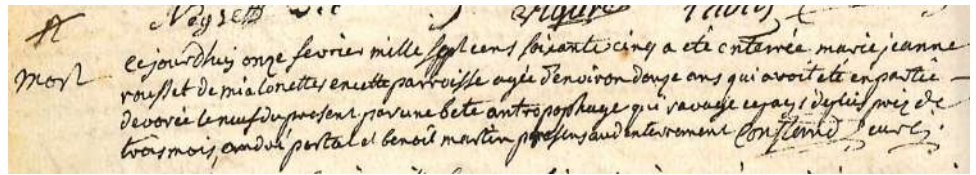 mort
ce jourdhuy onze fevrier mille sept cens soixante cinq a été enterrée marie jeanne
rousset de mialonettes en cette parroisse agée d'environ douze ans qui avoit été en partie
devorée le neuf du present par une bete antropophage qui ravage ce pays depuis près de
trois mois, andré portal et benoit martin presens audit enterrement curé